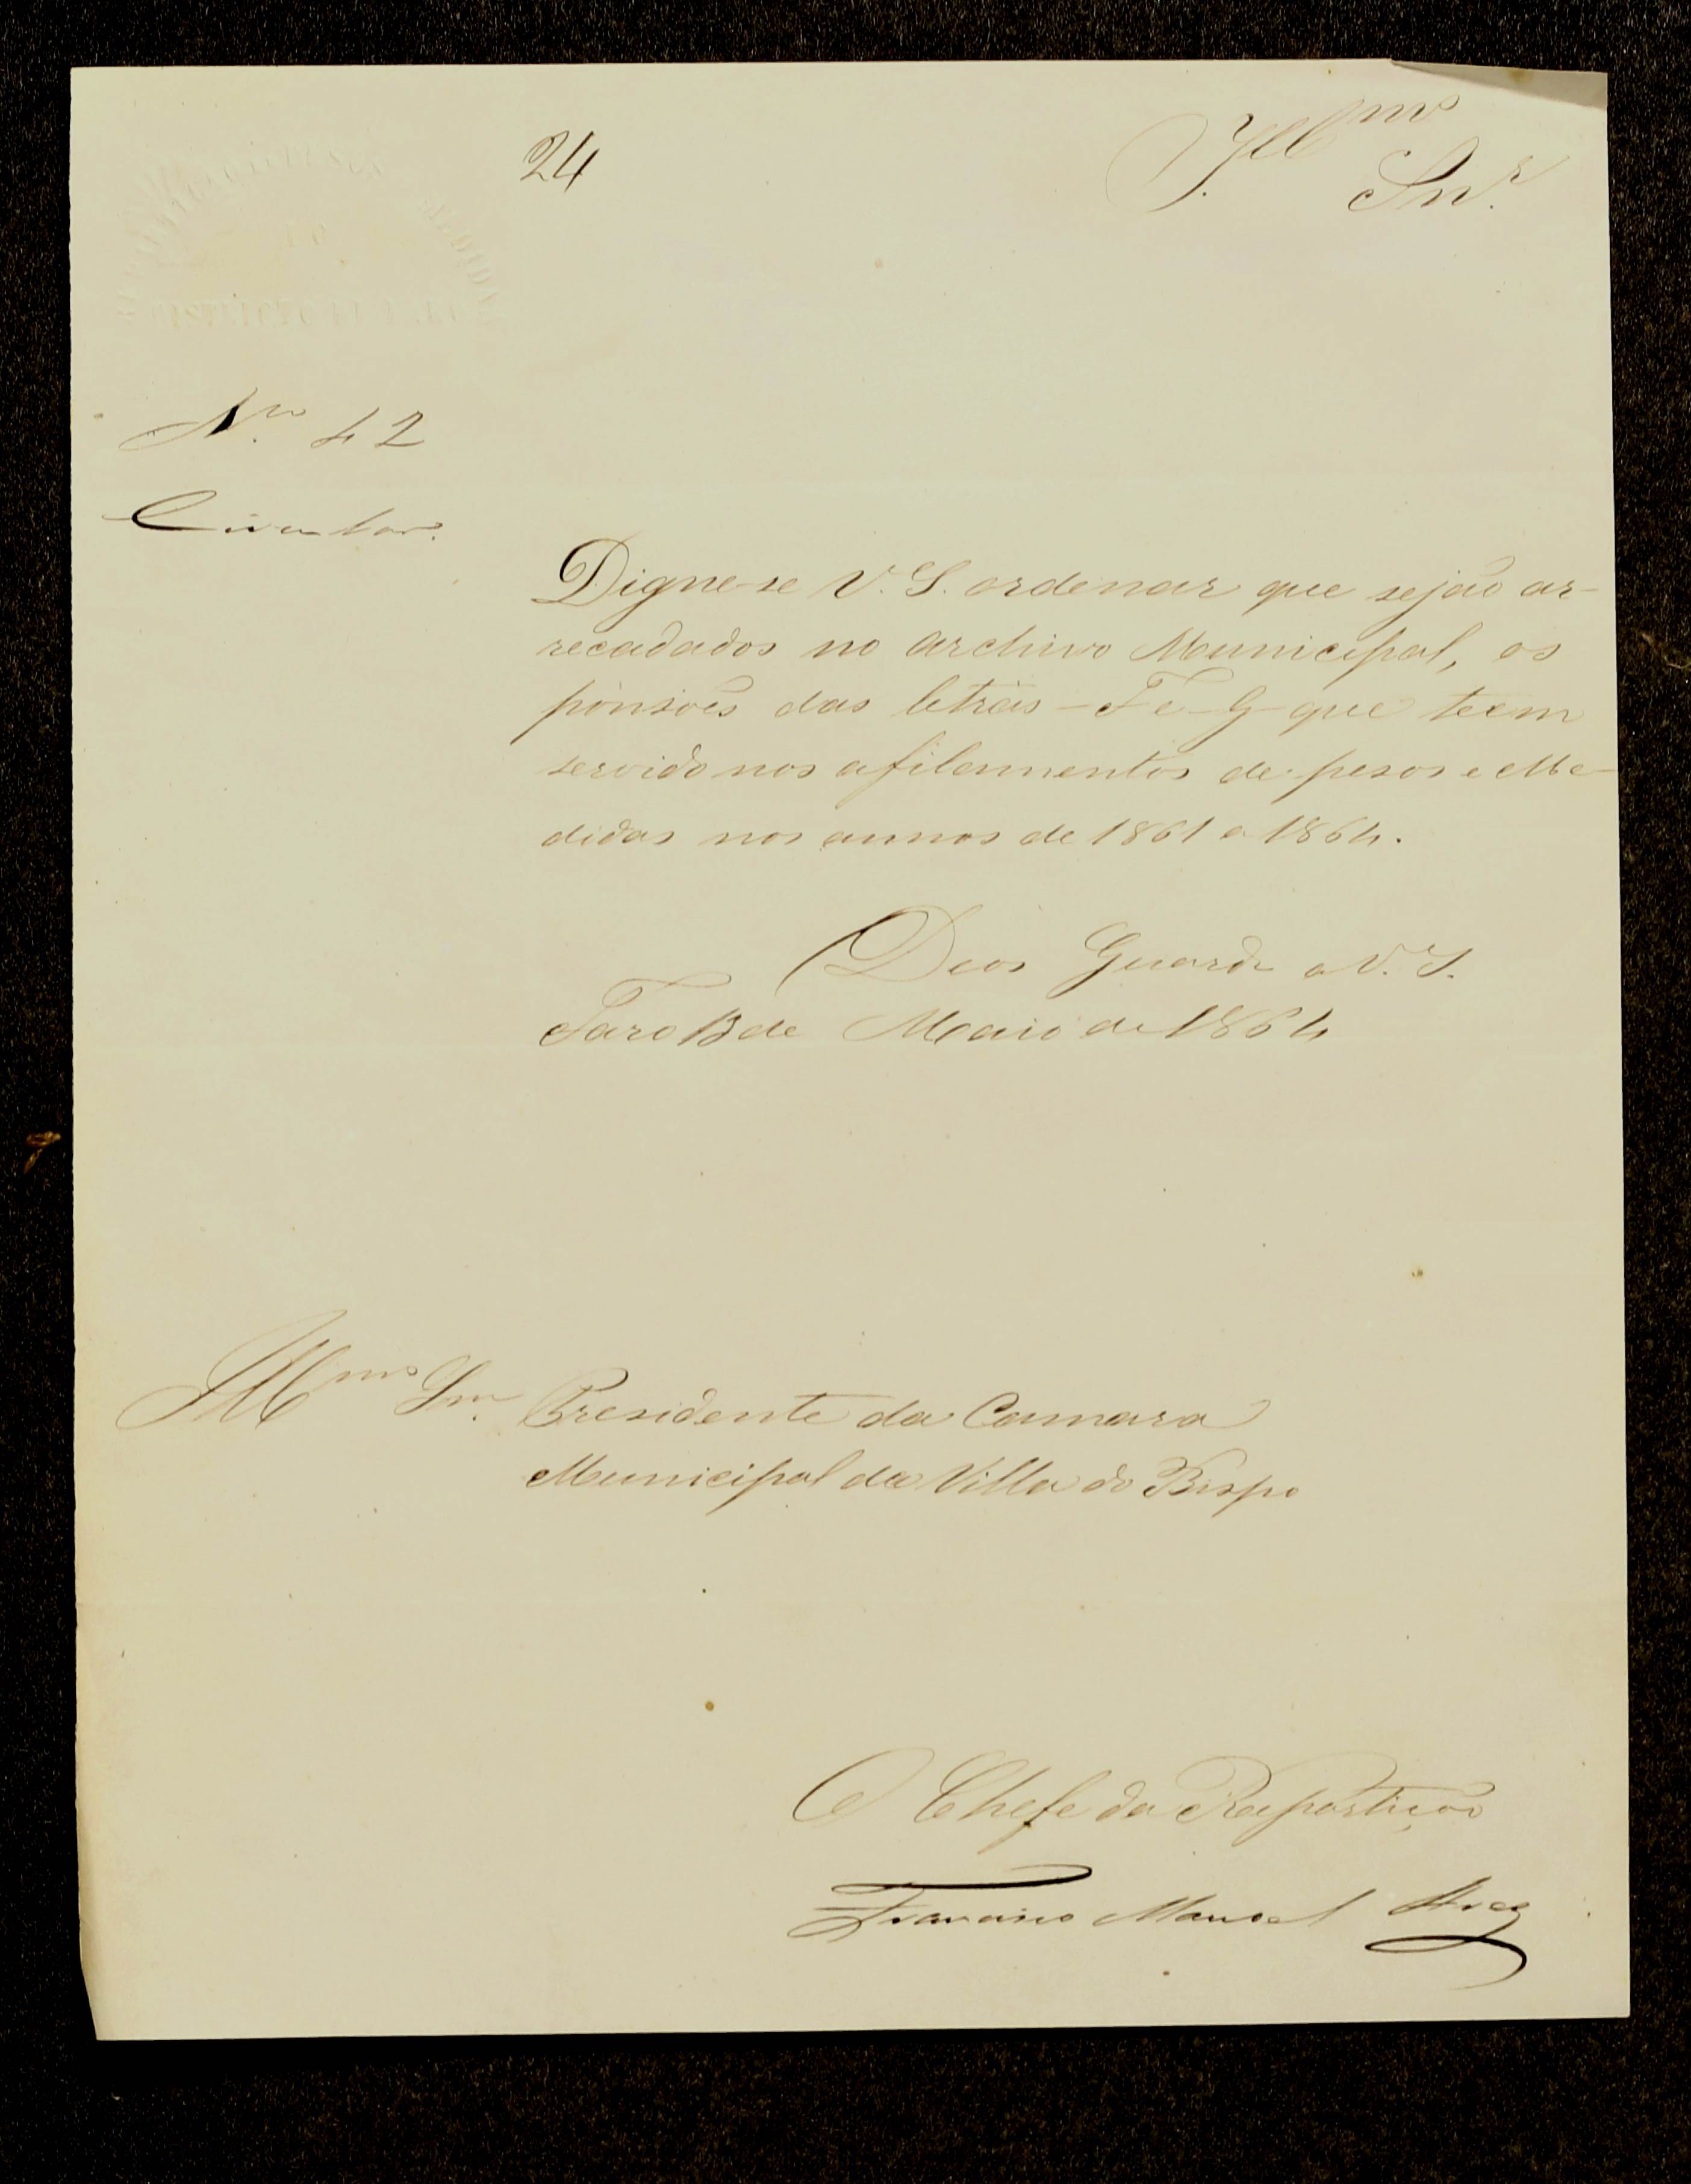 24
Illmo
Snr.
No. 42
Circular.
Digne-se V. S. ordenar que sejão ar-
recadados no archivo Municipal, os
ponsões das letras - F e - G - que teem
servido nos afilamentos de pesos e Me-
didas nos annos de 1861 a 1864.
Deos Guarde a V. S.
Faro 13 de Maio de 1864
Illmo Snr. Presidente da Camara
Municipal da Villa do Bispo
O Chefe da Repartição
Francisco Manoel